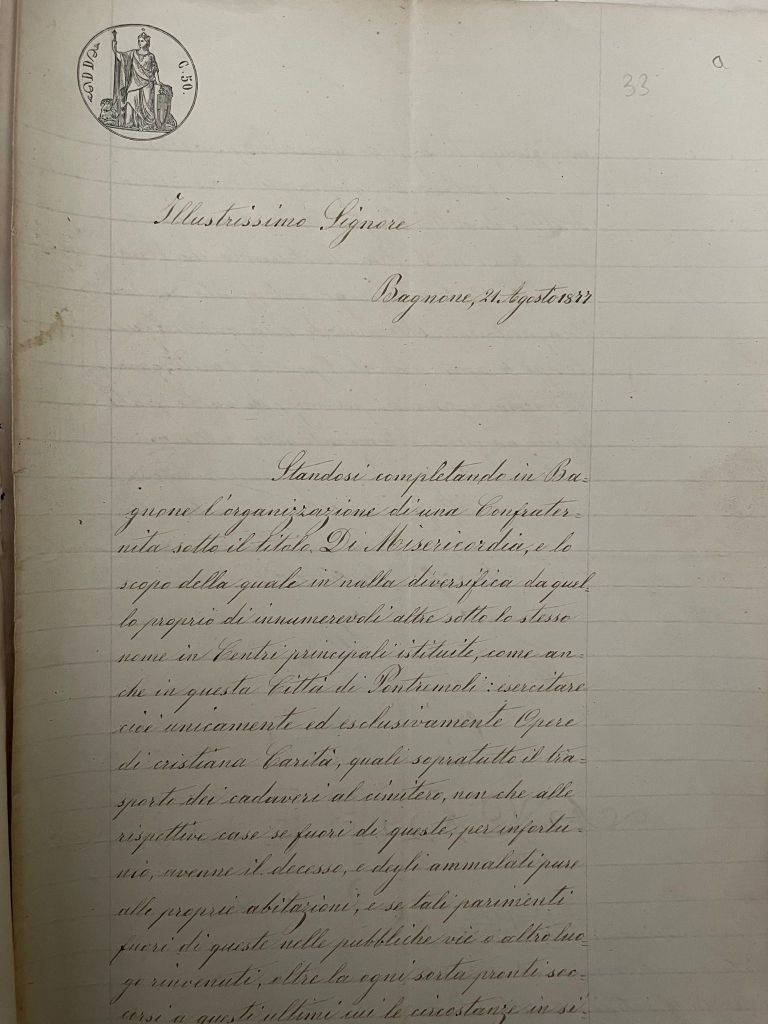 C. 50.
33
a
Illustrissimo Signore
Bagnone, 21 Agosto 1877
Standosi completando in Ba=
gnone l'organizzazione di una Confrater=
nita sotto il titolo Di Misericordia, e lo
scopo della quale in nulla diversifica da quel=
lo proprio di innumerevoli altre sotto lo stesso
nome in Centri principali istituite, come an=
che in questa Città di Pontremoli: esercitare
cioè unicamente ed esclusivamente Opere
di cristiana Carità, quali sopratutto il tra=
sporto dei cadaveri al cimitero, non che alle
rispettive case se fuori di queste, per infortu=
nio, avenne il decesso, e degli ammalati pure
alle proprie abitazioni, e se tali parimenti
fuori di queste nelle pubbliche vie o altro luo=
go rinvenuti, oltre la ogni sorta pronti soc=
corsi a questi ultimi cui le circostanze in si=